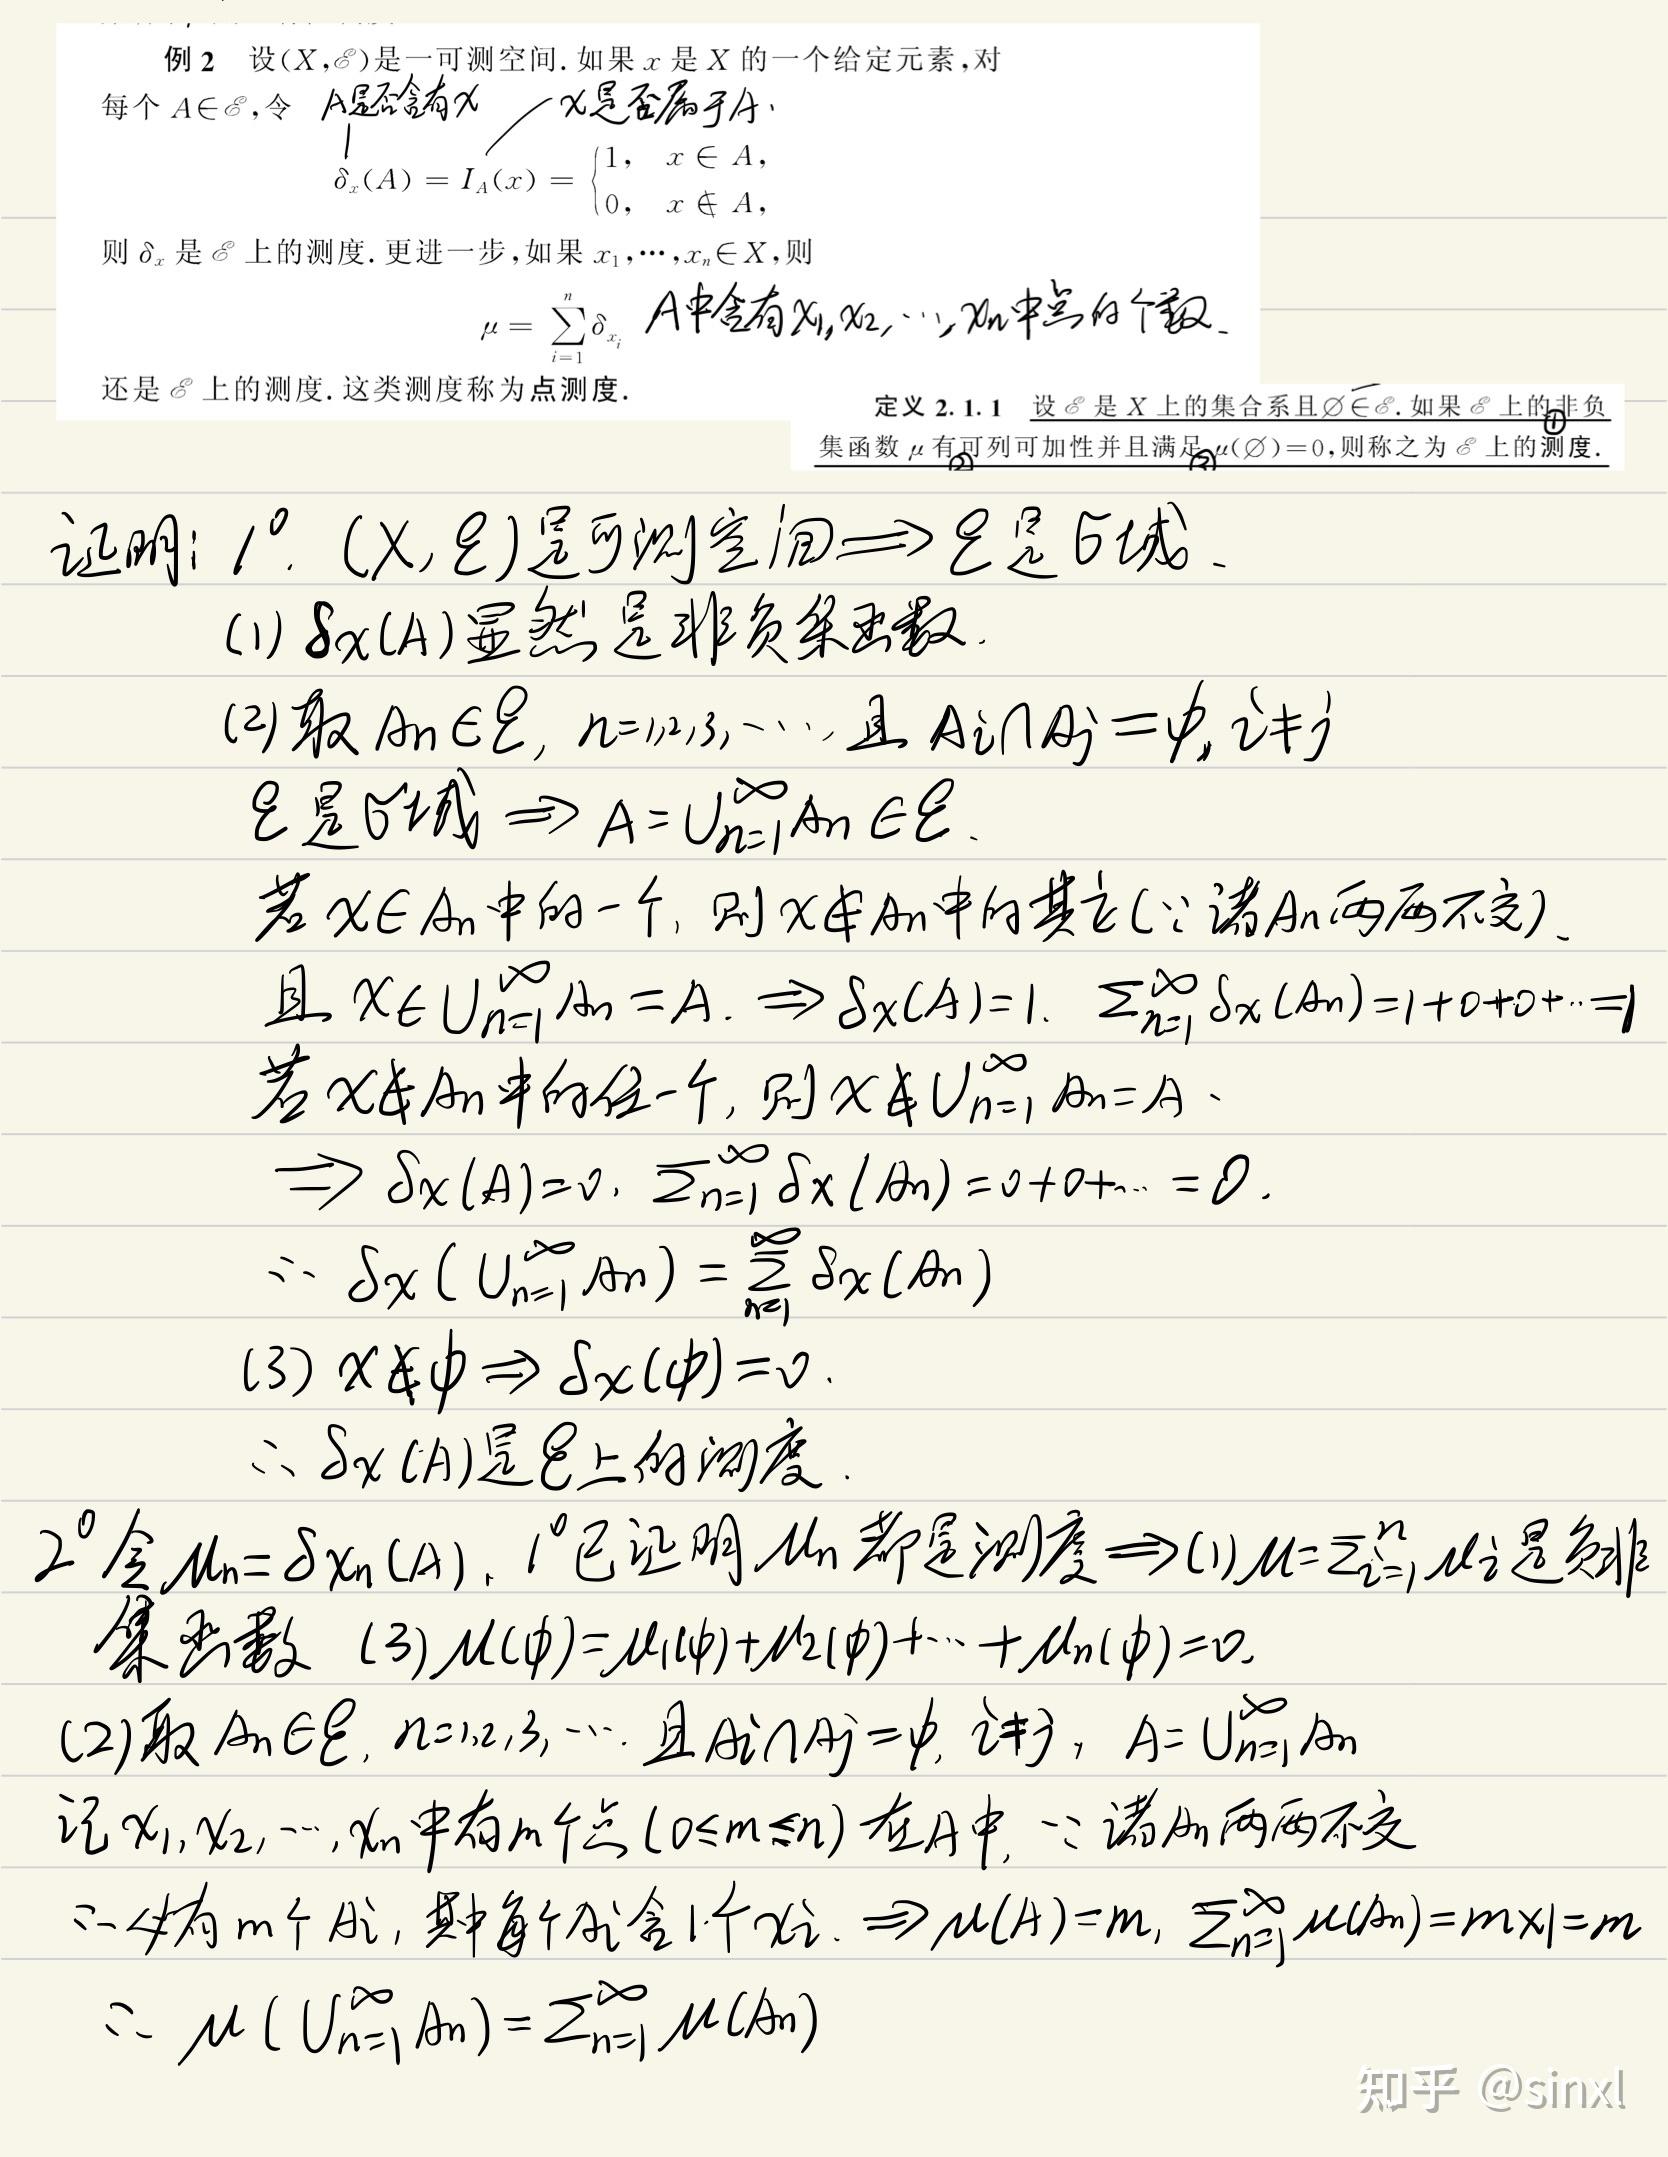 例 2 设(X,ℰ)是一可测空间.如果 x 是 X 的一个给定元素,对
每个 A∈ℰ,令 A是否含有x x是否属于A.
δₓ(A) = I_A(x) = { 1, x ∈ A,
0, x ∉ A,
则 δₓ 是 ℰ 上的测度.更进一步,如果 x₁,⋯,xₙ∈X,则
μ = ∑_{i=1}^{n} δ_{x_i} A中含有x₁,x₂,⋯,xₙ中点的个数.
还是 ℰ 上的测度.这类测度称为点测度.
定义 2.1.1 设 ℰ 是 X 上的集合系且∅∈ℰ.如果 ℰ 上的非负
①
集函数 μ 有可列可加性并且满足 μ(∅)=0,则称之为 ℰ 上的测度.
② ③
证明: 1°. (X, ℰ)是可测空间⟹ℰ是σ域.
(1) δx(A)显然是非负集函数.
(2) 取 An∈ℰ, n=1,2,3,⋯, 且 Ai∩Aj=φ, i≠j
ℰ是σ域 ⟹ A=∪_{n=1}^{∞}An∈ℰ.
若 x∈An中的一个, 则 x∉An中的其它(∵诸An两两不交).
且 x∈∪_{n=1}^{∞}An=A. ⟹ δx(A)=1. ∑_{n=1}^{∞}δx(An)=1+0+0+⋯=1
若 x∉An中的任一个, 则 x∉∪_{n=1}^{∞}An=A.
⟹ δx(A)=0. ∑_{n=1}^{∞}δx(An)=0+0+⋯=0.
∴ δx(∪_{n=1}^{∞}An)=∑_{n=1}^{∞}δx(An)
(3) x∉φ⟹δx(φ)=0.
∴ δx(A)是ℰ上的测度.
2° 令μn=δxn(A). 1°已证明μn都是测度⟹(1)μ=∑_{i=1}^{n}μi是负非
集函数 (3)μ(φ)=μ1(φ)+μ2(φ)+⋯+μn(φ)=0.
(2)取An∈ℰ, n=1,2,3,⋯. 且Ai∩Aj=φ, i≠j, A=∪_{n=1}^{∞}An
记x₁,x₂,⋯,xn中有m个点(0≤m≤n)在A中, ∵诸An两两不交
∴必有m个Ai, 其中每个Ai含1个xi. ⟹μ(A)=m, ∑_{n=1}^{∞}μ(An)=m×1=m
∴ μ(∪_{n=1}^{∞}An)=∑_{n=1}^{∞}μ(An)
知乎 @sinxl